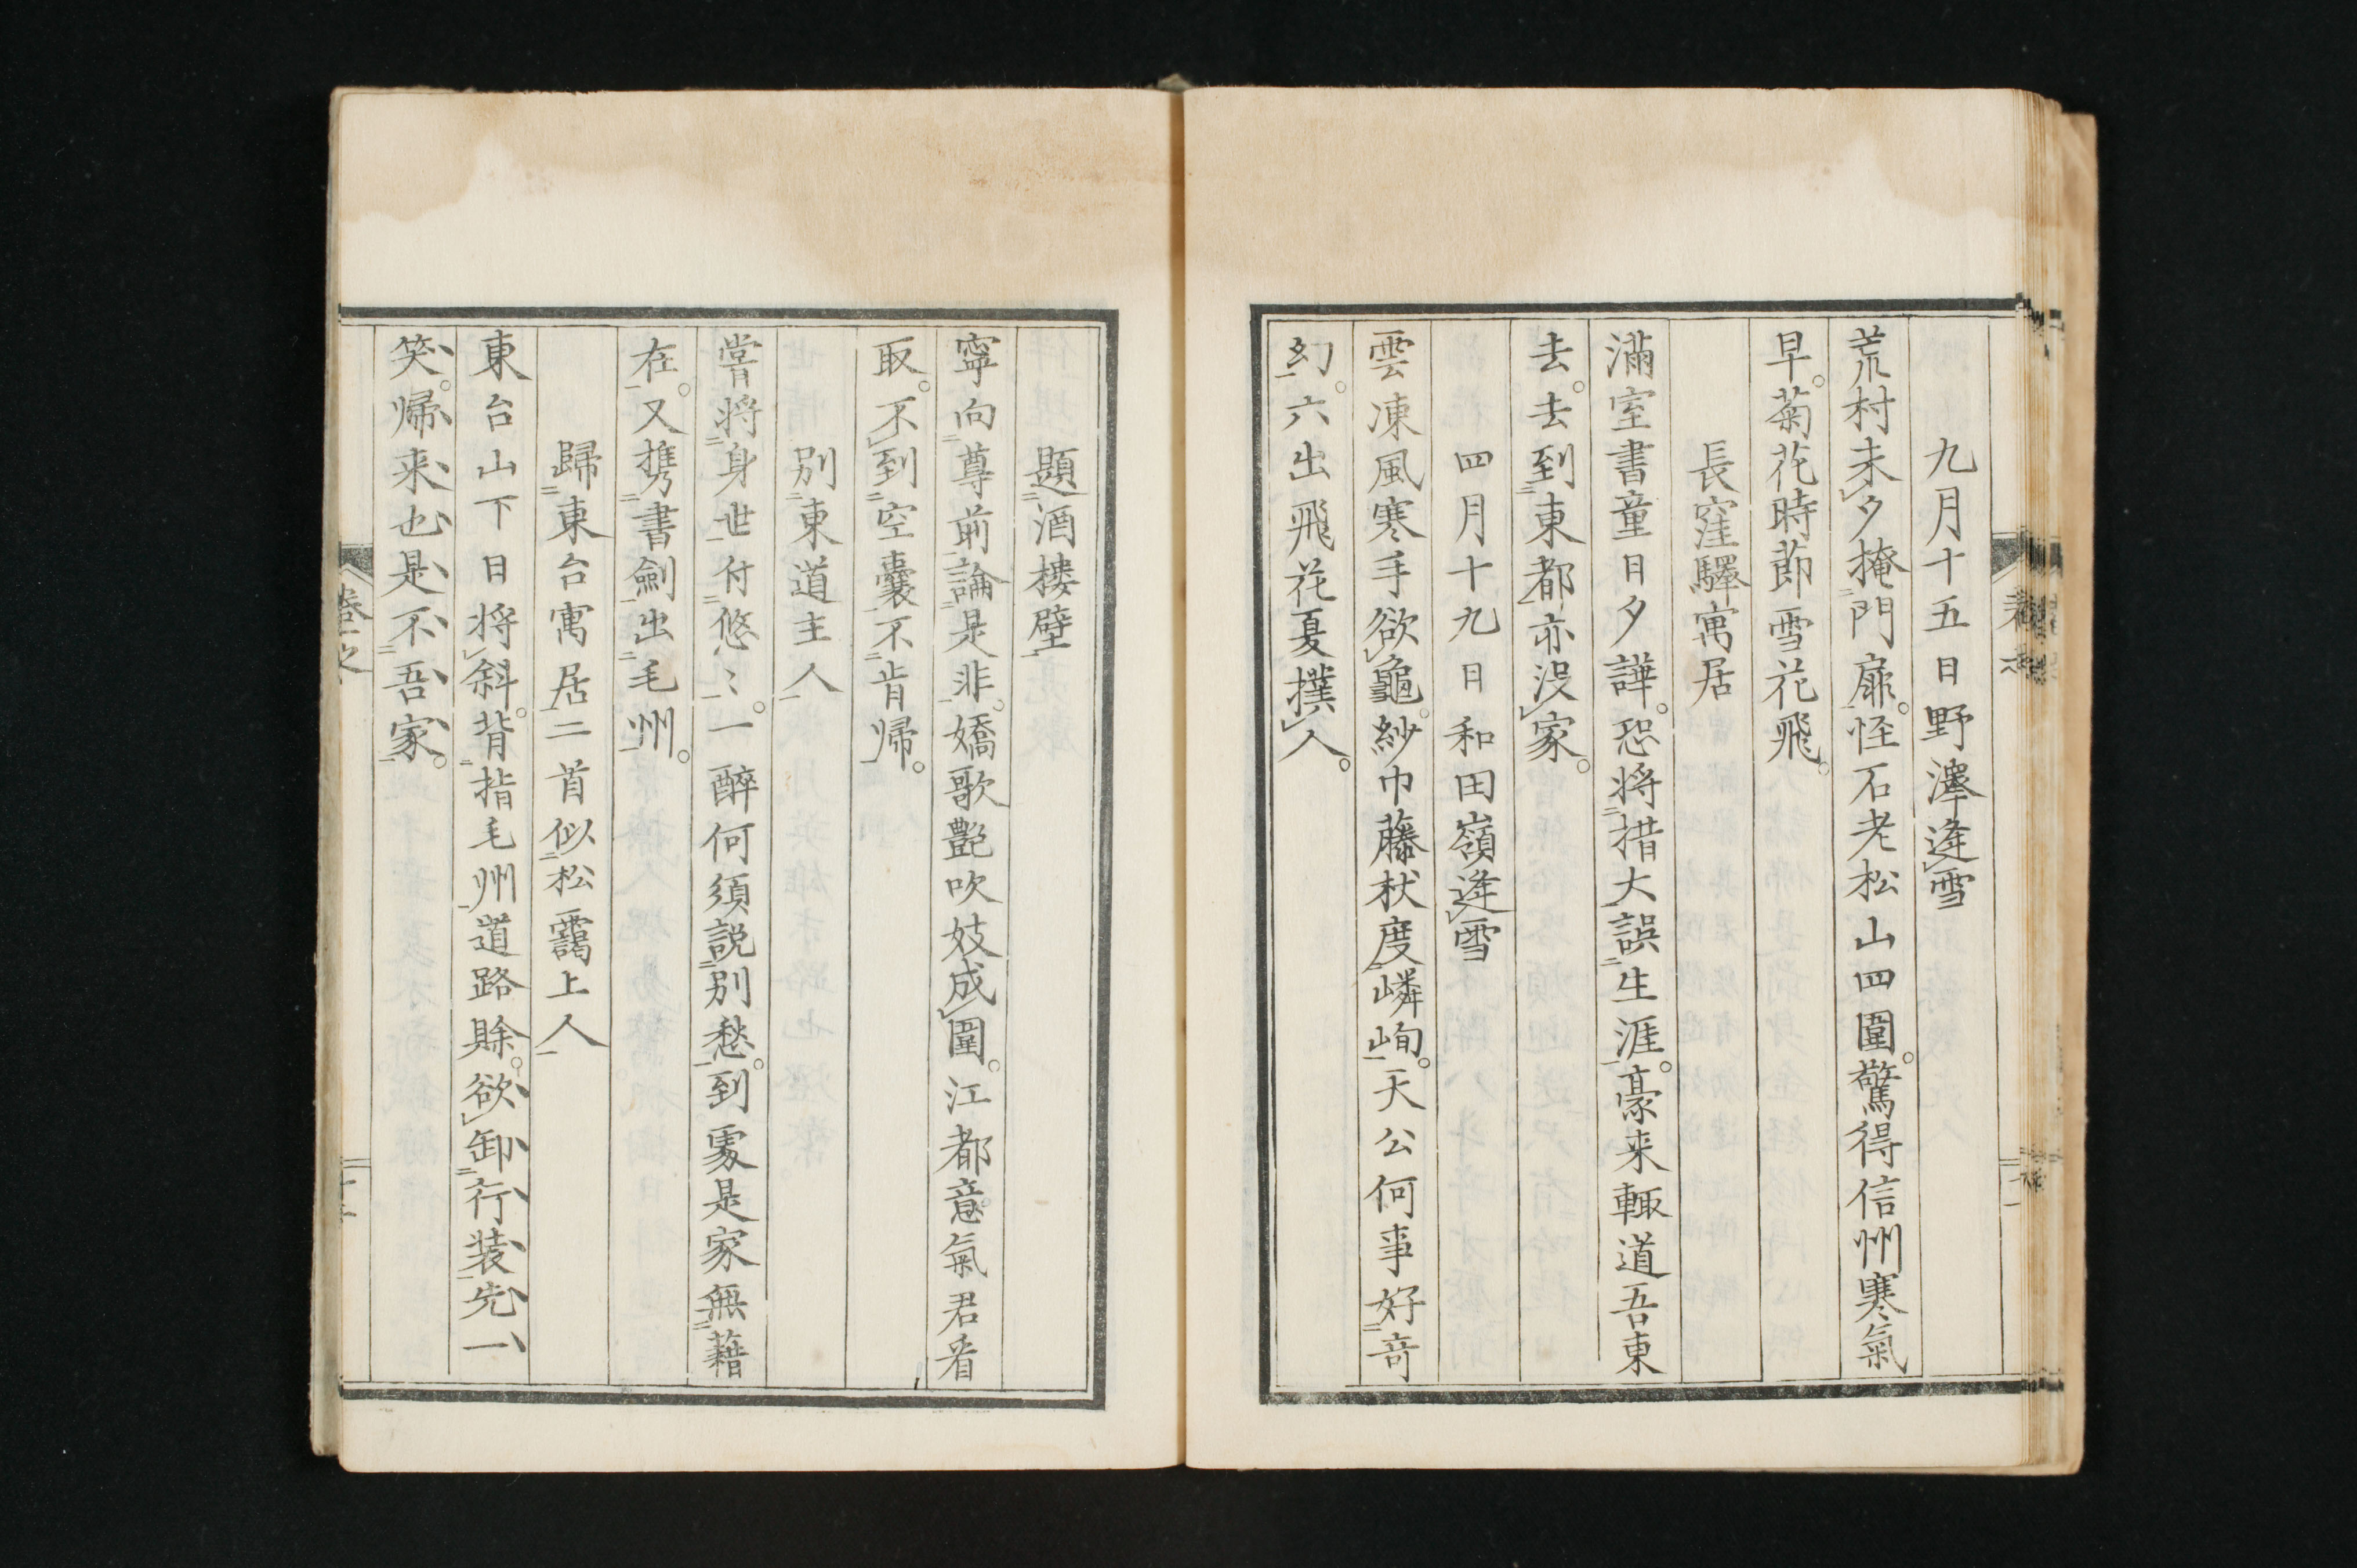 九月十五日野澤逢雪
荒村未夕掩門扉。怪石老松山四圍。驚得信州寒氣
早。菊花時節雪花飛。
長窪驛寓居
滿室書童日夕譁。恐將措大誤生涯。豪来輙道吾東
去。去到東都亦没家。
四月十九日和田嶺逢雪
雲凍風寒手欲龜。紗巾藤杖度嶙峋。天公何事好奇
幻。六出飛花戛撲人。
題酒樓壁
寧向尊前論是非。嬌歌艷吹妓成圍。江都意氣君看
取。不到空囊不肯帰。
別東道主人
嘗将身世付悠〻。一醉何須説別愁。到處是家無藉
在。又携書劍出毛州。
歸東台寓居二首似松靄上人
東台山下日将斜。背指毛州道路賖。欲卸行装先一
笑。帰来也是不吾家。